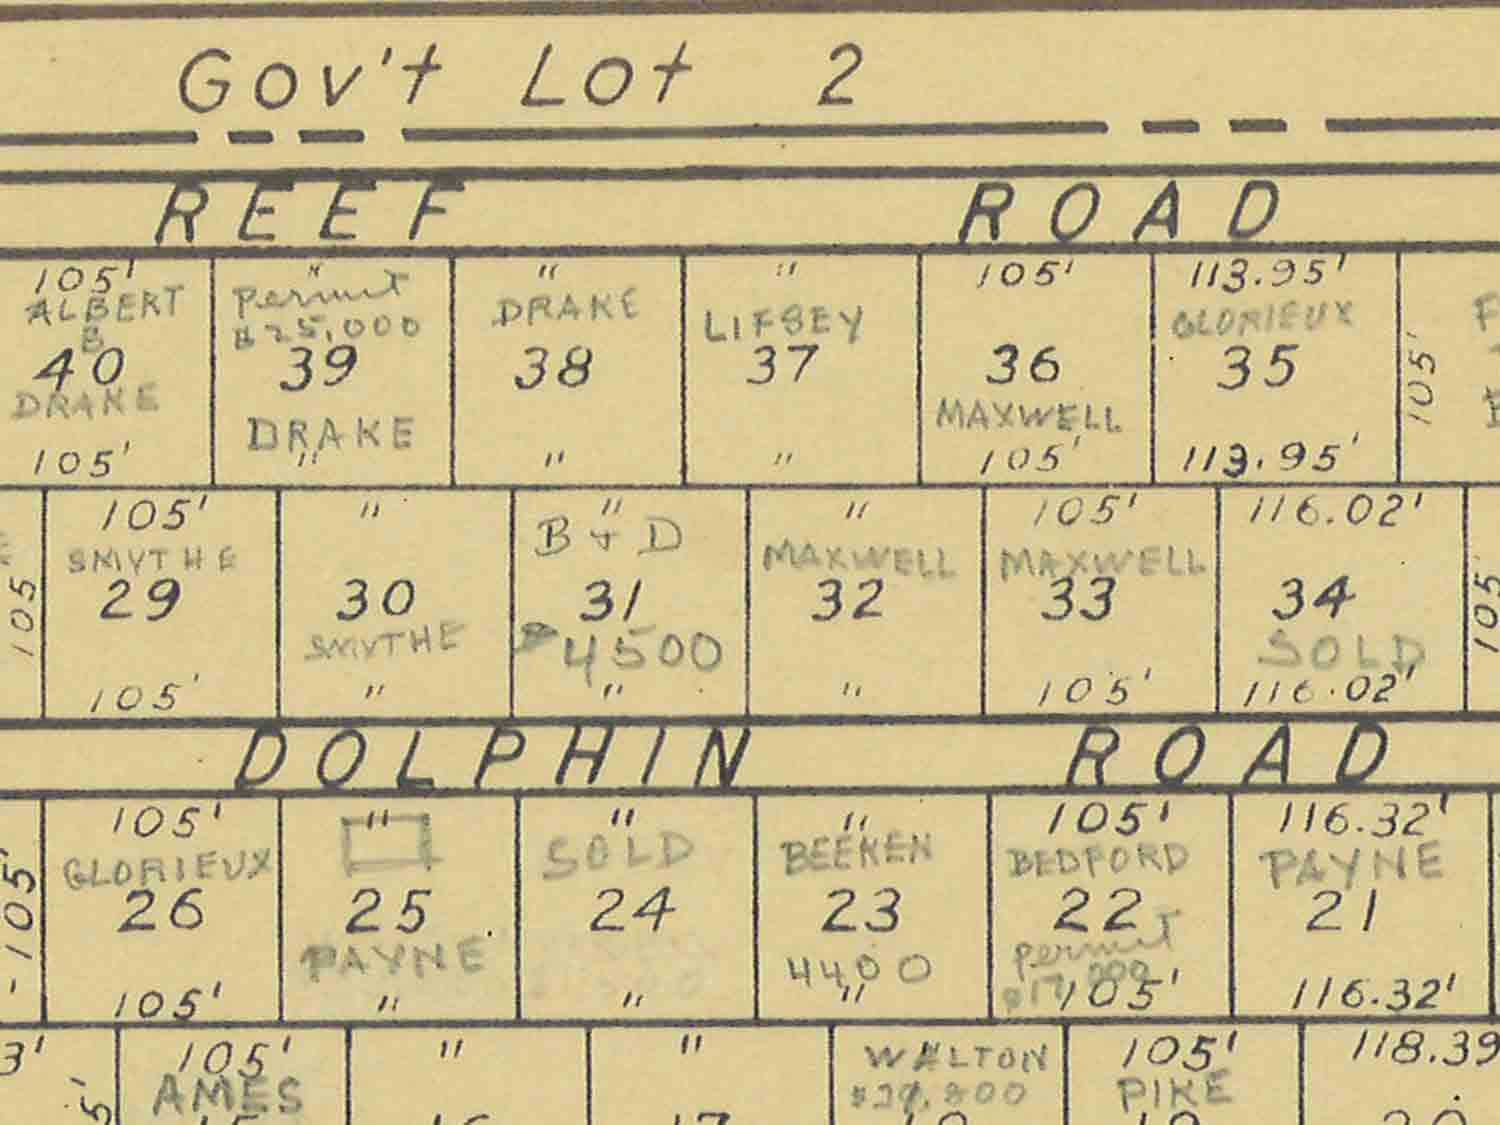 Gov't Lot 2
REEF ROAD
105' " " " 105' 113.95'
ALBERT permit DRAKE LIFSEY GLORIEUX 105'
B $25,000
40 39 38 37 36 35
DRAKE DRAKE MAXWELL
105' " " " 105' 113.95'
105' " " " 105' 116.02'
SMYTHE B + D MAXWELL MAXWELL
105 29 30 31 32 33 34 105
SMYTHE $4500 SOLD
105' " " " 105' 116.02'
DOLPHIN ROAD
105' " " " 105' 116.32'
GLORIEUX SOLD BEEKEN BEDFORD PAYNE
105' 26 25 24 23 22 21
PAYNE 4400 permit
$17,000
105' " " " 105' 116.32'
3' 105' " " WALTON 105' 118.39
5' AMES PIKE